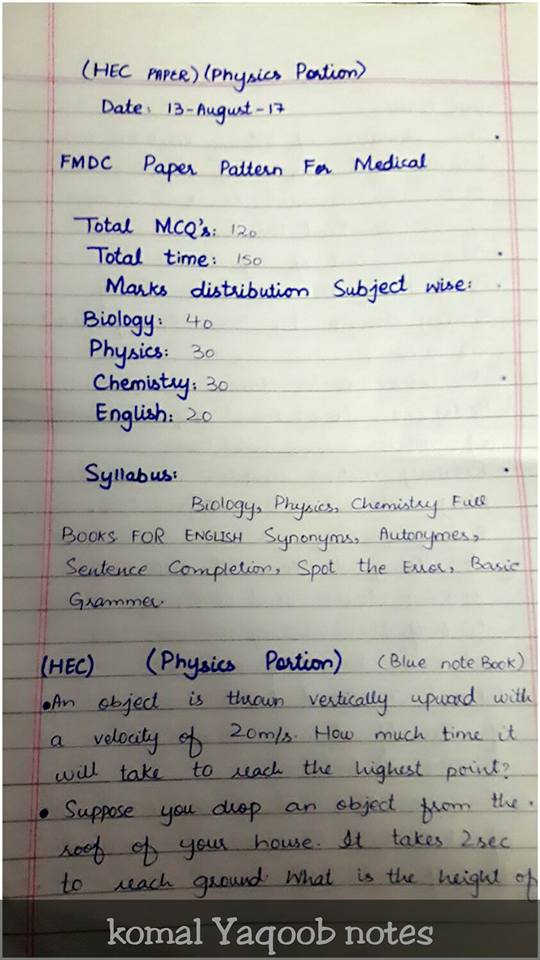 (HEC PAPER) (Physics Portion)
Date: 13-August-17
FMDC Paper Pattern For Medical
Total MCQ's: 120
Total time: 150
Marks distribution Subject wise:
Biology: 40
Physics: 30
Chemistry: 30
English: 20
Syllabus:
Biology, Physics, Chemistry Full
BOOKS FOR ENGLISH Synonyms, Autonymes,
Sentence Completion, Spot the Error, Basic
Grammer.
(HEC) (Physics Portion) (Blue note Book)
• An object is thrown vertically upward with
a velocity of 20m/s. How much time it
will take to reach the highest point?
• Suppose you drop an object from the
roof of your house. It takes 2sec
to reach ground. What is the height of
komal Yaqoob notes